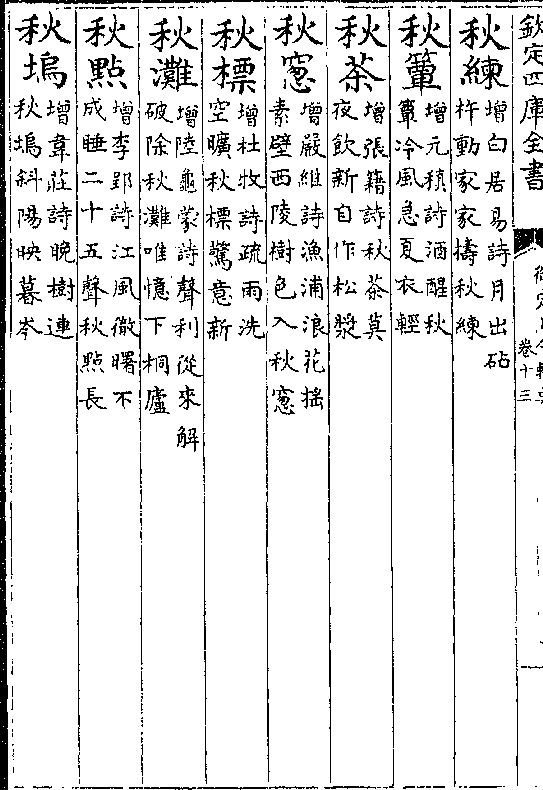 欽定四庫全書
卷十三
秋練
增白居易詩月出砧
杵動家家擣秋練
秋簟
增元稹詩酒醒秋
簟冷風急夏衣輕
秋茶
增張籍詩秋茶莫
夜飲新自作松漿
秋窻
增嚴維詩漁浦浪花搖
素壁西陵樹色入秋窻
秋標
增杜牧詩疏雨洗
空曠秋標驚意新
秋灘
增陸龜蒙詩聲利從來解
破除秋灘唯憶下桐廬
秋點
增李郢詩江風徹曙不
成睡二十五聲秋點長
秋塢
增韋莊詩晚樹連
秋塢斜陽映暮岑